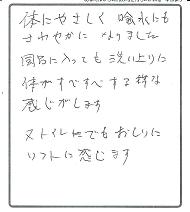 体にやさしく 喰水にも
さわやかに なりました
風呂に入っても 洗い上りに
体がすべすべする様な
感じがします
又トイレでもおしりに
ソフトに感じます